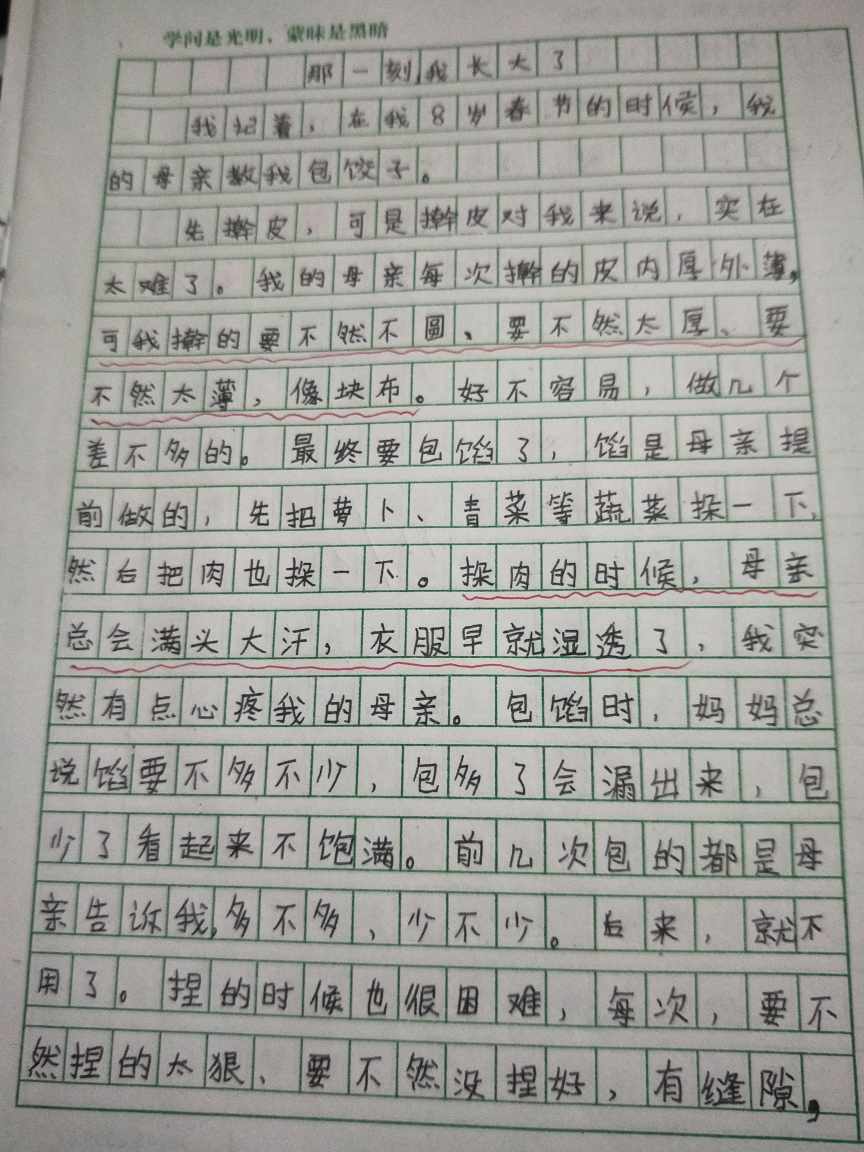 学问是光明，蒙昧是黑暗
那一刻,我长大了
我记着，在我8岁春节的时候，我
的母亲教我包饺子。
先擀皮，可是擀皮对我来说，实在
太难了。我的母亲每次擀的皮内厚外薄，
可我擀的要不然不圆、要不然太厚、要
不然太薄，像块布。好不容易，做几个
差不多的。最终要包馅了，馅是母亲提
前做的，先把萝卜、青菜等蔬菜操一下，
然后把肉也操一下。操肉的时候，母亲
总会满头大汗，衣服早就湿透了，我突
然有点心疼我的母亲。包馅时，妈妈总
说馅要不多不少，包多了会漏出来，包
少了看起来不饱满。前几次包的都是母
亲告诉我,多不多、少不少。后来，就不
用了。捏的时候也很困难，每次，要不
然捏的太狠、要不然没捏好，有缝隙，